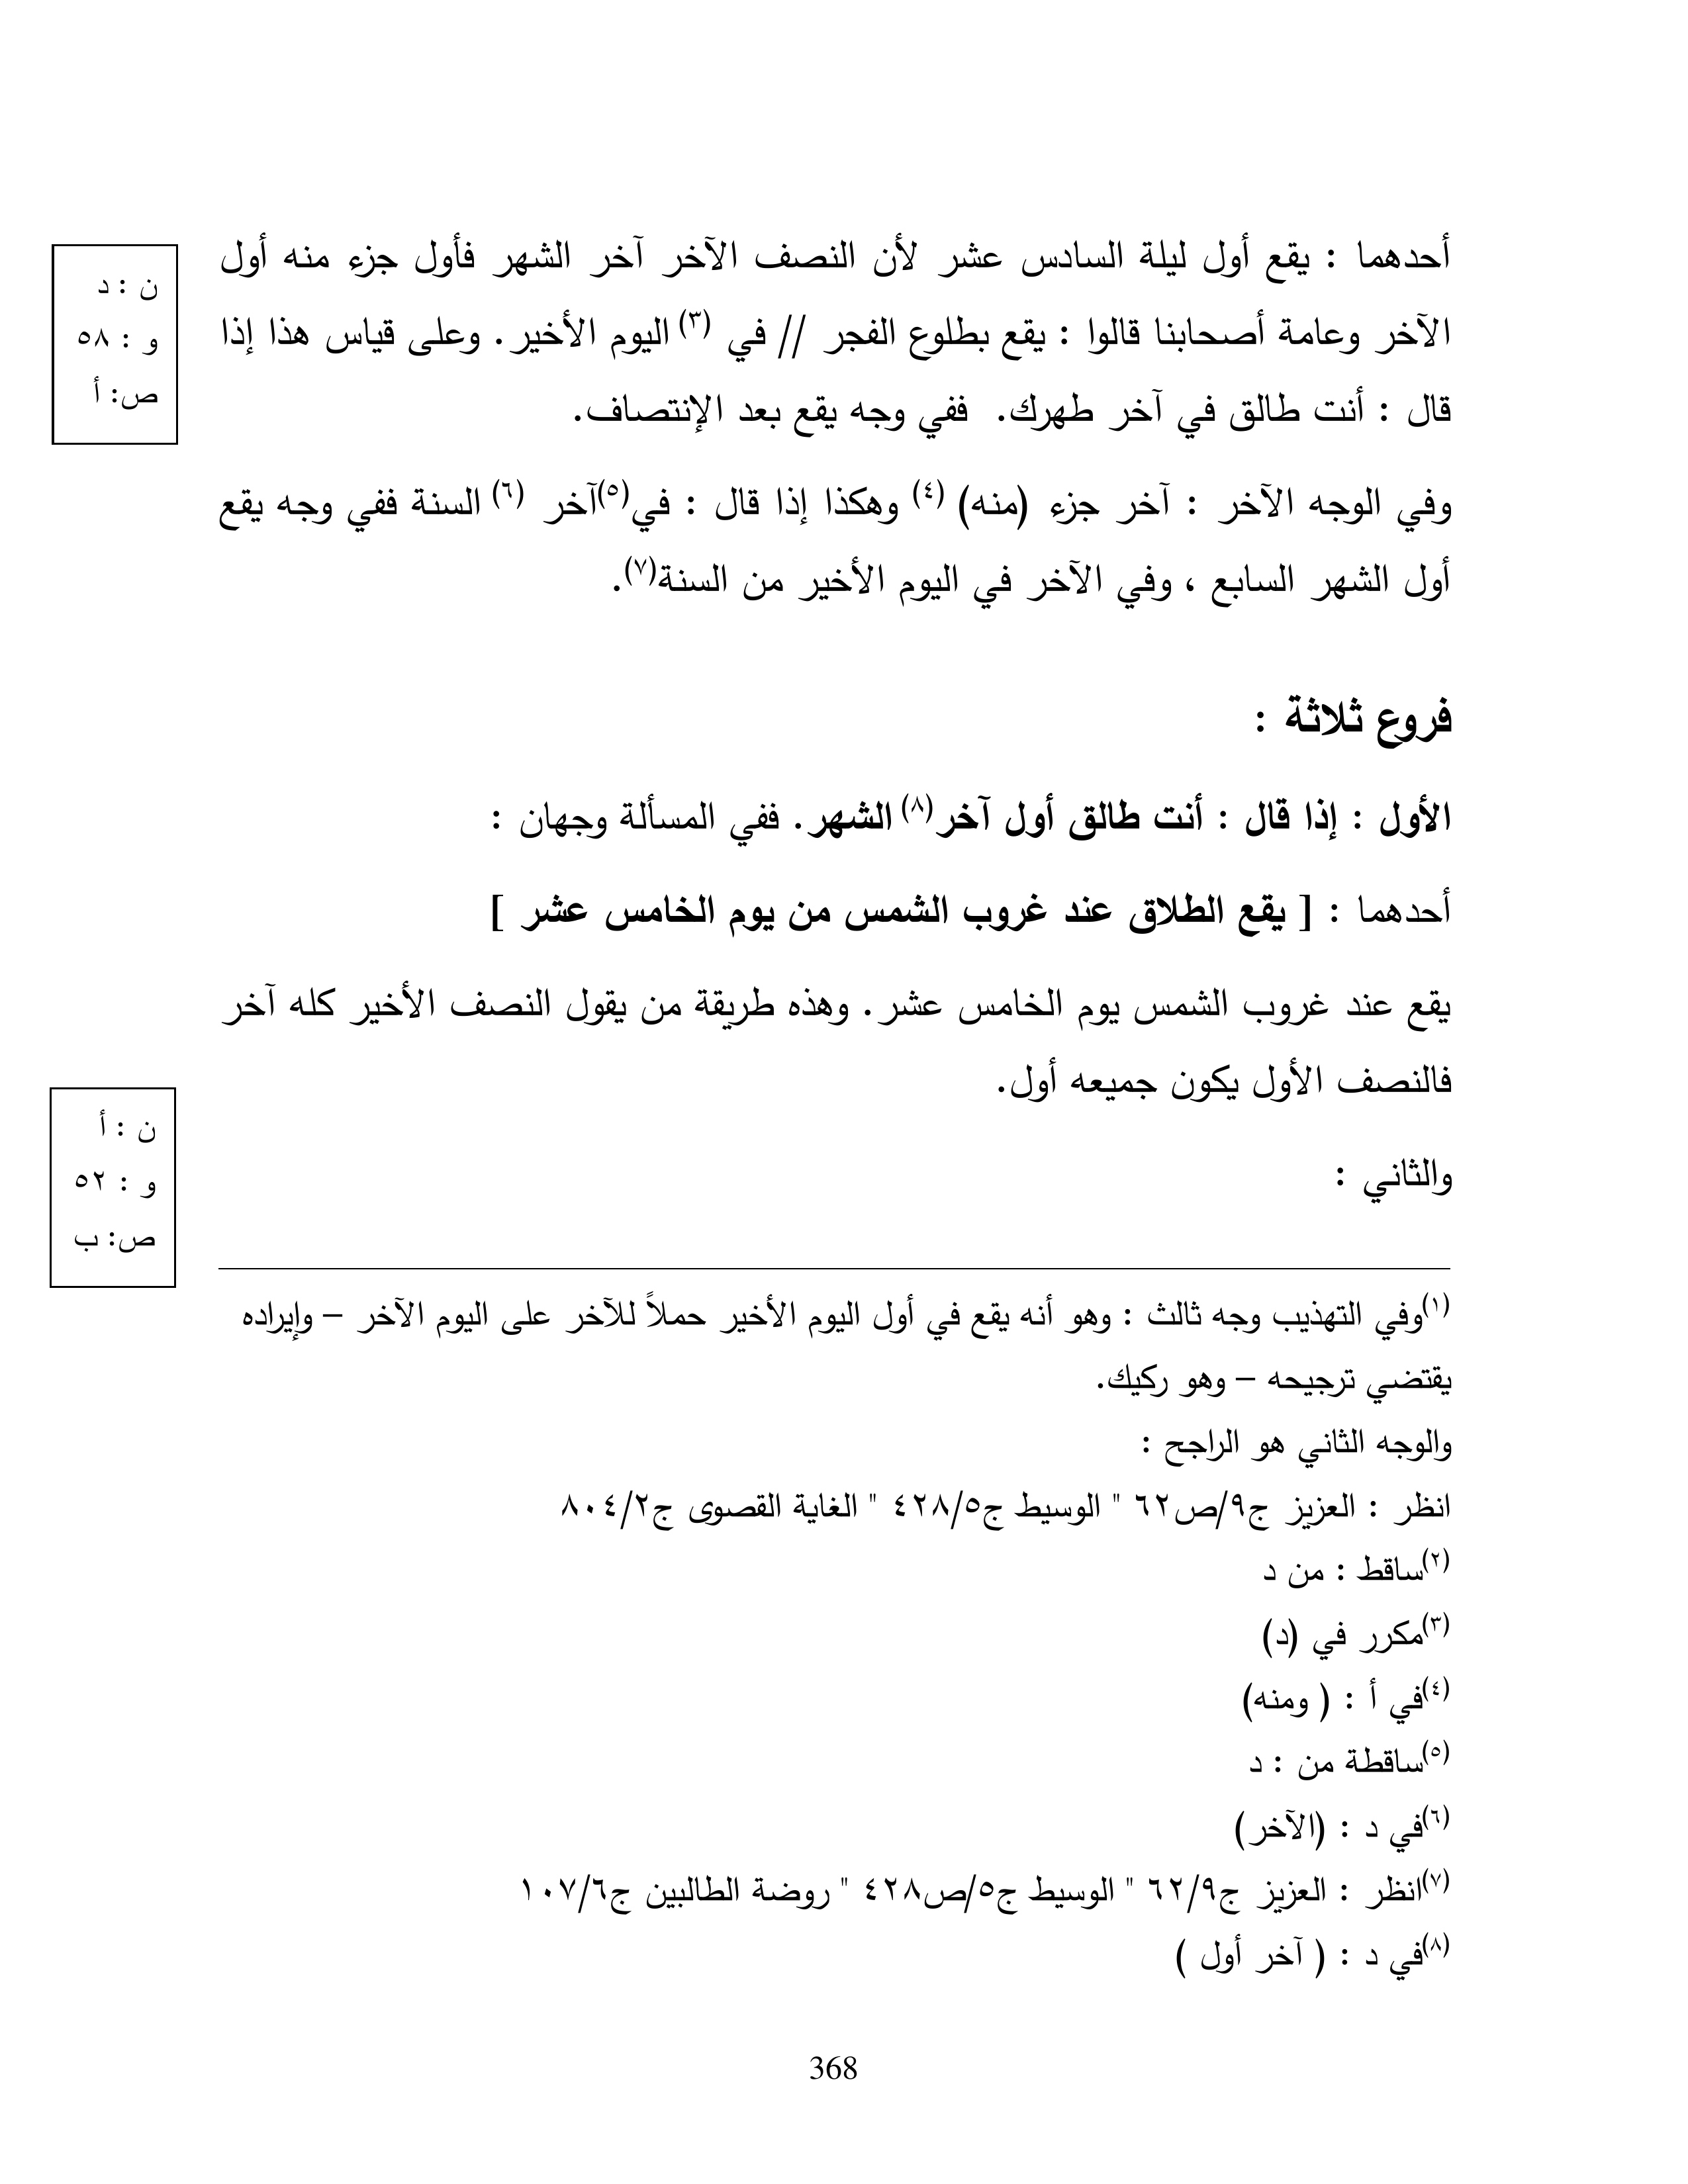 أحدهما : يقع أول ليلة السادس عشر لأن النصف الآخر آخر الشهر فأول جزء منه أول
الآخر وعامة أصحابنا قالوا : يقع بطلوع الفجر // في (٣) اليوم الأخير. وعلى قياس هذا إذا
قال : أنت طالق في آخر طهرك. ففي وجه يقع بعد الإنتصاف.
ن : د
و : ٥٨
ص: أ
وفي الوجه الآخر : آخر جزء (منه) (٤) وهكذا إذا قال : في(٥)آخر (٦) السنة ففي وجه يقع
أول الشهر السابع ، وفي الآخر في اليوم الأخير من السنة(٧).
فروع ثلاثة :
الأول : إذا قال : أنت طالق أول آخر(٨) الشهر. ففي المسألة وجهان :
أحدهما : [ يقع الطلاق عند غروب الشمس من يوم الخامس عشر ]
يقع عند غروب الشمس يوم الخامس عشر. وهذه طريقة من يقول النصف الأخير كله آخر
فالنصف الأول يكون جميعه أول.
والثاني :
ن : أ
و : ٥٢
ص: ب
(١)وفي التهذيب وجه ثالث : وهو أنه يقع في أول اليوم الأخير حملاً للآخر على اليوم الآخر – وإيراده
يقتضي ترجيحه – وهو ركيك.
والوجه الثاني هو الراجح :
انظر : العزيز ج٩/ص٦٢ " الوسيط ج٤٢٨/٥ " الغاية القصوى ج٨٠٤/٢
(٢)ساقط : من د
(٣)مكرر في (د)
(٤)في أ : ( ومنه)
(٥)ساقطة من : د
(٦)في د : (الآخر)
(٧)انظر : العزيز ج٦٢/٩ " الوسيط ج٥/ص٤٢٨ " روضة الطالبين ج١٠٧/٦
(٨)في د : ( آخر أول )
368